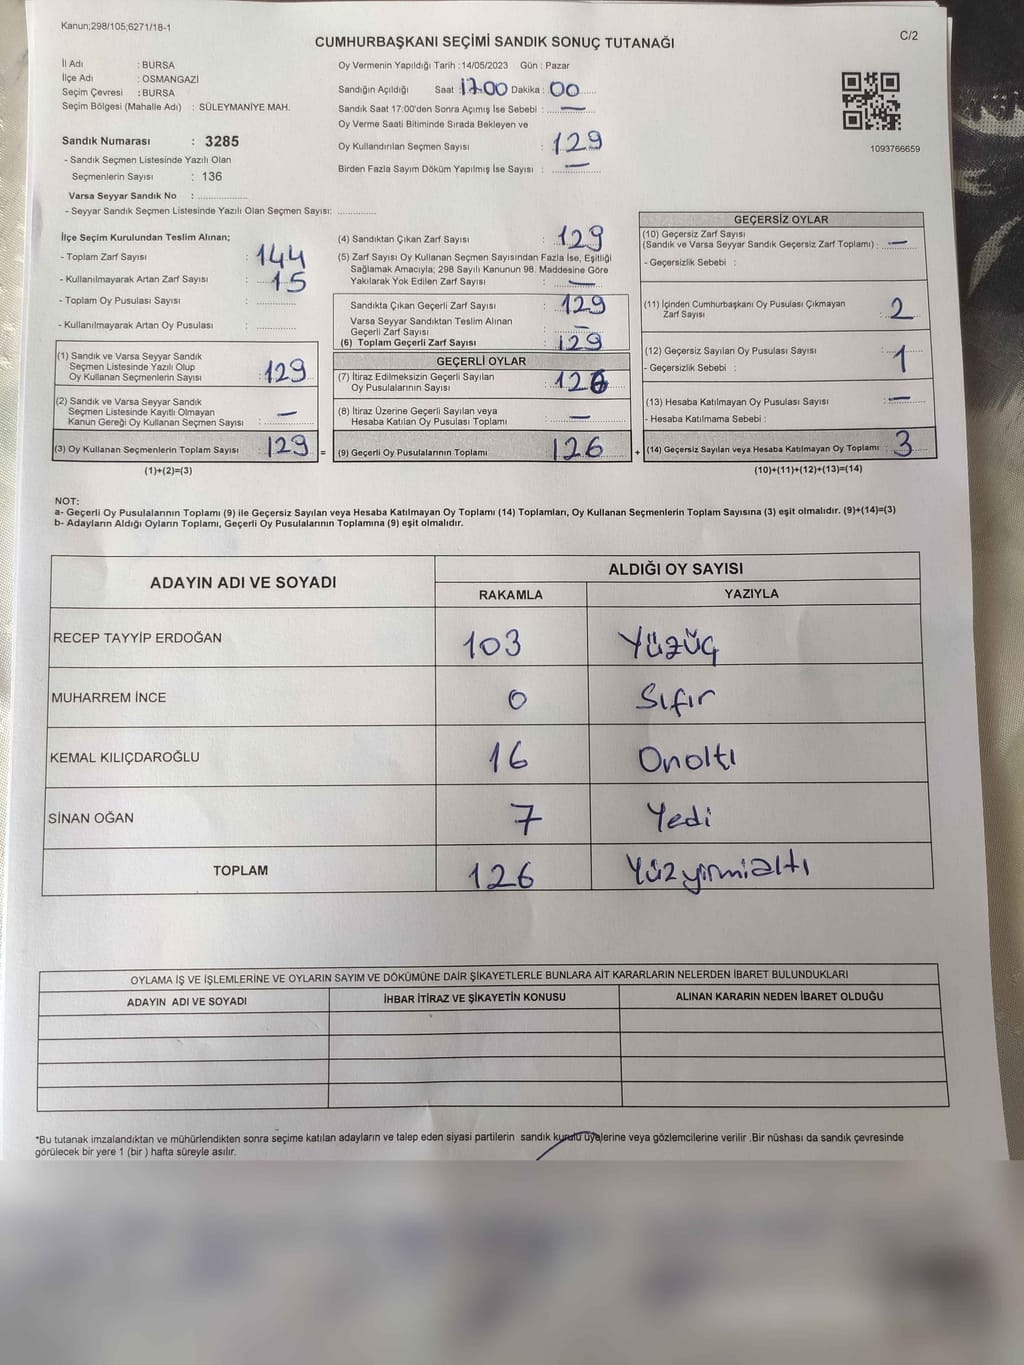 Kanun;298/105;6271/18-1
C/2
CUMHURBAŞKANI SEÇİMİ SANDIK SONUÇ TUTANAĞI
İl Adı : BURSA
İlçe Adı : OSMANGAZİ
Seçim Çevresi : BURSA
Seçim Bölgesi (Mahalle Adı) : SÜLEYMANİYE MAH.
Sandık Numarası : 3285
- Sandık Seçmen Listesinde Yazılı Olan
Seçmenlerin Sayısı : 136
Varsa Seyyar Sandık No : ...............
- Seyyar Sandık Seçmen Listesinde Yazılı Olan Seçmen Sayısı: ............
Oy Vermenin Yapıldığı Tarih : 14/05/2023 Gün : Pazar
Sandığın Açıldığı Saat : 17.00 Dakika : 00
Sandık Saat 17:00'den Sonra Açımış İse Sebebi : —
Oy Verme Saati Bitiminde Sırada Bekleyen ve
Oy Kullandırılan Seçmen Sayısı : 129
Birden Fazla Sayım Döküm Yapılmış İse Sayısı : —
1093766659
İlçe Seçim Kurulundan Teslim Alınan;
- Toplam Zarf Sayısı : 144
- Kullanılmayarak Artan Zarf Sayısı : 15
- Toplam Oy Pusulası Sayısı : ............
- Kullanılmayarak Artan Oy Pusulası : ............
(1) Sandık ve Varsa Seyyar Sandık
Seçmen Listesinde Yazılı Olup
Oy Kullanan Seçmenlerin Sayısı : 129
(2) Sandık ve Varsa Seyyar Sandık
Seçmen Listesinde Kayıtlı Olmayan
Kanun Gereği Oy Kullanan Seçmen Sayısı : —
(3) Oy Kullanan Seçmenlerin Toplam Sayısı : 129 =
(1)+(2)=(3)
(4) Sandıktan Çıkan Zarf Sayısı : 129
(5) Zarf Sayısı Oy Kullanan Seçmen Sayısından Fazla İse, Eşitliği
Sağlamak Amacıyla; 298 Sayılı Kanunun 98. Maddesine Göre
Yakılarak Yok Edilen Zarf Sayısı : —
Sandıkta Çıkan Geçerli Zarf Sayısı : 129
Varsa Seyyar Sandıktan Teslim Alınan
Geçerli Zarf Sayısı : —
(6) Toplam Geçerli Zarf Sayısı : 129
GEÇERLİ OYLAR
(7) İtiraz Edilmeksizin Geçerli Sayılan
Oy Pusulalarının Sayısı : 126
(8) İtiraz Üzerine Geçerli Sayılan veya
Hesaba Katılan Oy Pusulası Toplamı : —
(9) Geçerli Oy Pusulalarının Toplamı : 126 +
GEÇERSİZ OYLAR
(10) Geçersiz Zarf Sayısı
(Sandık ve Varsa Seyyar Sandık Geçersiz Zarf Toplamı) : —
- Geçersizlik Sebebi :
(11) İçinden Cumhurbaşkanı Oy Pusulası Çıkmayan
Zarf Sayısı : 2
(12) Geçersiz Sayılan Oy Pusulası Sayısı : 1
- Geçersizlik Sebebi :
(13) Hesaba Katılmayan Oy Pusulası Sayısı : —
- Hesaba Katılmama Sebebi :
(14) Geçersiz Sayılan veya Hesaba Katılmayan Oy Toplamı : 3
(10)+(11)+(12)+(13)=(14)
NOT:
a- Geçerli Oy Pusulalarının Toplamı (9) ile Geçersiz Sayılan veya Hesaba Katılmayan Oy Toplamı (14) Toplamları, Oy Kullanan Seçmenlerin Toplam Sayısına (3) eşit olmalıdır. (9)+(14)=(3)
b- Adayların Aldığı Oyların Toplamı, Geçerli Oy Pusulalarının Toplamına (9) eşit olmalıdır.
ADAYIN ADI VE SOYADI
ALDIĞI OY SAYISI
RAKAMLA YAZIYLA
RECEP TAYYİP ERDOĞAN 103 Yüzüç
MUHARREM İNCE 0 Sıfır
KEMAL KILIÇDAROĞLU 16 Onaltı
SİNAN OĞAN 7 Yedi
TOPLAM 126 Yüzyirmialtı
OYLAMA İŞ VE İŞLEMLERİNE VE OYLARIN SAYIM VE DÖKÜMÜNE DAİR ŞİKAYETLERLE BUNLARA AİT KARARLARIN NELERDEN İBARET BULUNDUKLARI
ADAYIN ADI VE SOYADI İHBAR İTİRAZ VE ŞİKAYETİN KONUSU ALINAN KARARIN NEDEN İBARET OLDUĞU
*Bu tutanak imzalandıktan ve mühürlendikten sonra seçime katılan adayların ve talep eden siyasi partilerin sandık kurulu üyelerine veya gözlemcilerine verilir .Bir nüshası da sandık çevresinde
görülecek bir yere 1 (bir ) hafta süreyle asılır.